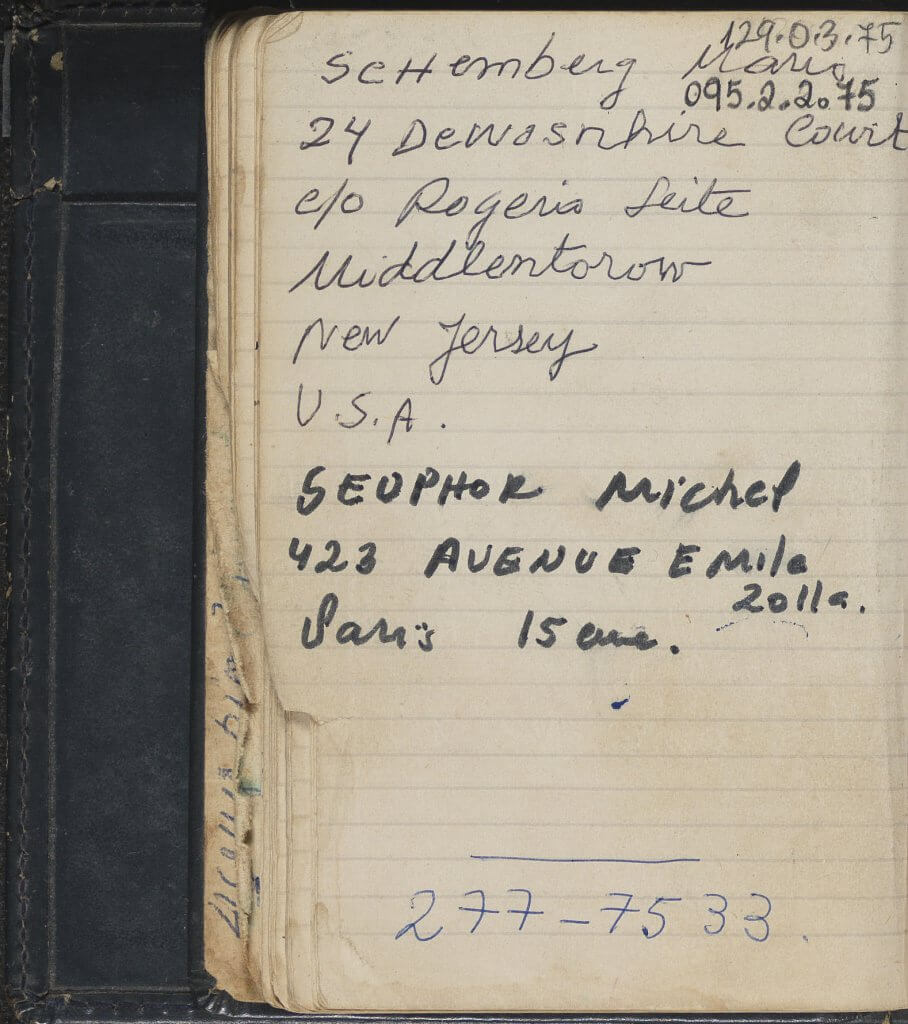 129.03.75
Schemberg Mario
095.2.2.75
24 Dewosnhire Court
c/o Rogerio Leite
Middlentorow
New Jersey
U.S.A.
SEUPHOR Michel
423 AVENUE Emile
Zolla.
Paris 15 eme.
277-7533.